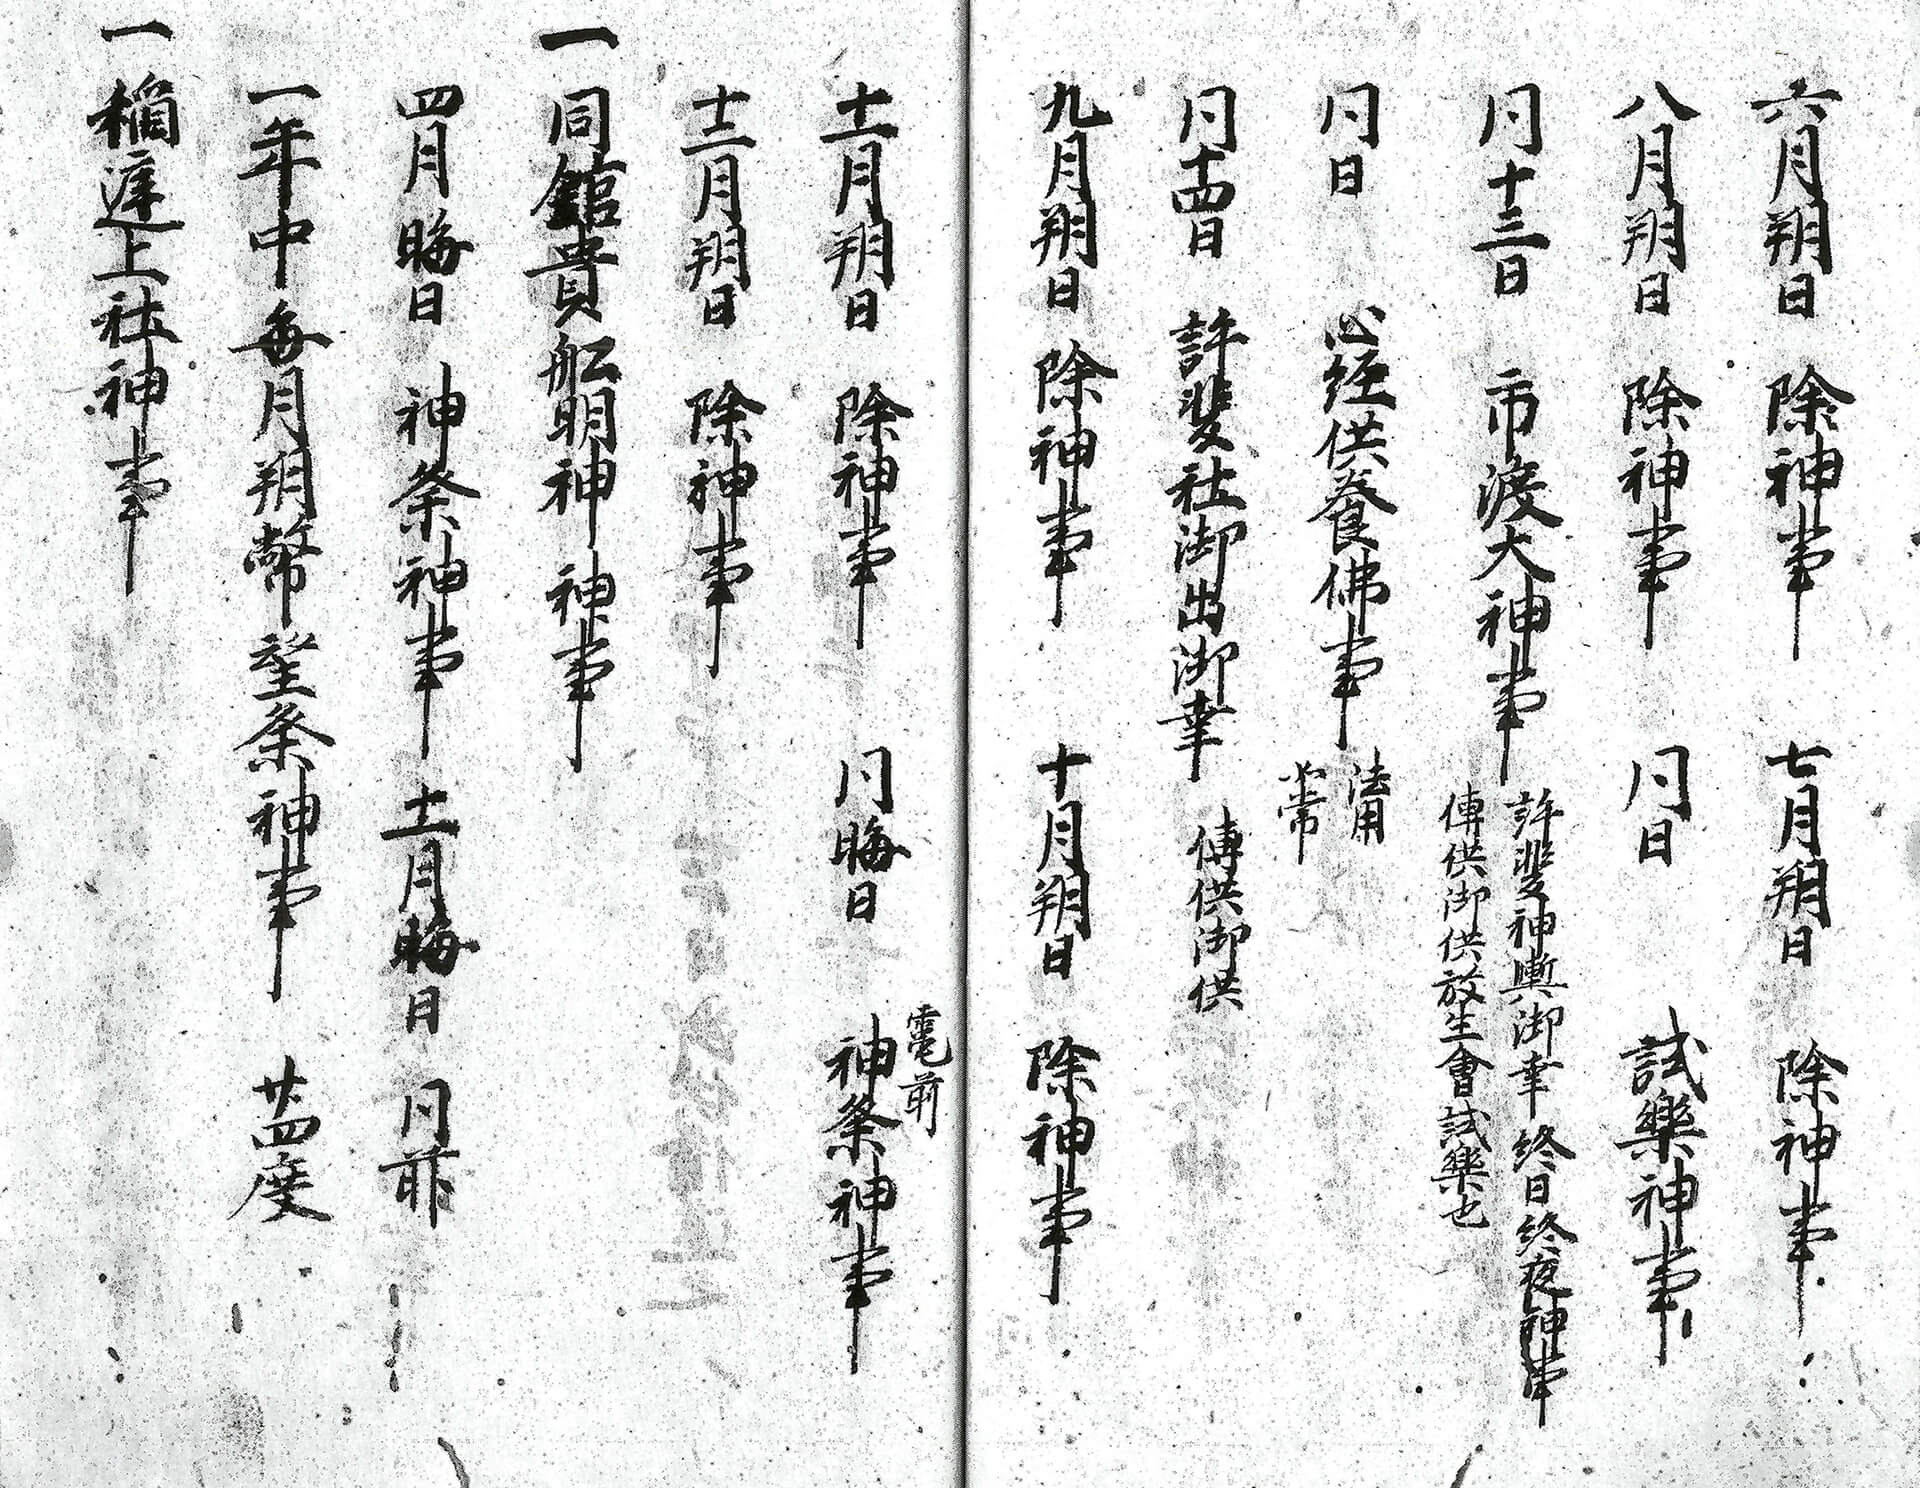 六月朔日 除神事 七月朔日 除神事
八月朔日 除神事 同日 試樂神事
同十三日 市渡大神事
許斐神輿御幸終日終夜神事
傳供御供放生會試樂也
同日 心経供養佛事
法用
如常
同十四日 許斐社御出御幸 傳供御供
九月朔日 除神事 十月朔日 除神事
十一月朔日 除神事 同晦日 神祭神事
竈前
十二月朔日 除神事
一 同舘貴舩明神神事
四月晦日 神祭神事 十一月晦日 同前
一年中毎月朔幣望祭神事 廿四度
一 稲庭上社神事